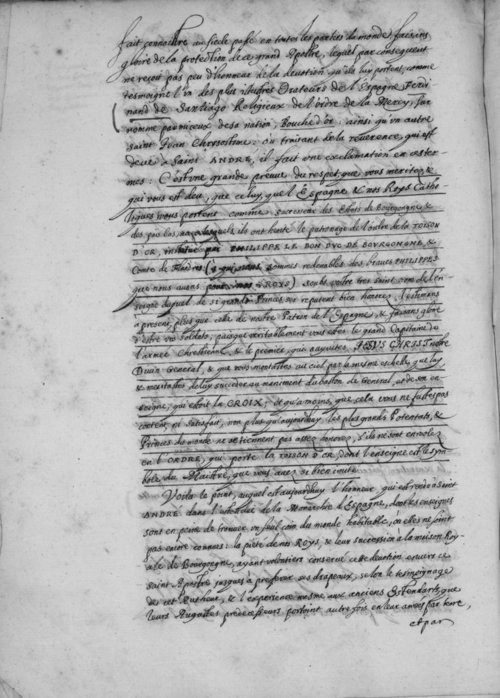 fait connoistre au siecle passé en toutes les parties du monde faisans
gloire de la protection de ce grand Apostre, lequel par consequent
ne reçoit pas peu d'honneur de la deuotion qu'ils luy portent, comme
tesmoigne l'vn des plus illustres Orateurs de l'Espagne Ferdi
nand de Santiago Religieux de l'ordre de la Mercy, sur
nommé par ceux de sa nation, Bouche d'or: ainsi qu'vn autre
saint Jean Chrisostome: ou traitant de la reuerence, qui est
deüe a Saint ANDRE, il fait vne exclamation en ces ter
mes: C'est vne grande preuue du respect, que vous meritez &
qui vous est deu, que celuy, que l'Espagne & nos Roys Catho
liques vous portent comme successeurs des Estats de Bourgongne, &
des païs bas, ausquels ils ont herité le patronage de l'ordre de la TOISON
D'OR, institué par PHILIPPE LE BON DVC DE BOVRGONGNE, &
Comte de Flandres (a qui sommes redeuables des braues PHILIPPES
que nous auons pour nos ROYS) soubs vostre tres saint nom & en
seigne duquel de si grands Princes se reputent bien honorez, s'estimans
a present, plus que celle de nostre Patron de l'Espagne, & faisans gloire
d'estre vos soldats, puisque veritablement vous estes le grand Capitaine de
l'armée Chrestienne, & le premier, qui auez suiuy JESVS CHRIST nostre
Diuin General, & que vous montastes au ciel par la mesme eschelle que luy
& meritastes de luy succeder au maniment du baston de General, et de son en
seigne, qui estoit la CROIX; et qu'a moins, que cela vous ne fustes pas
content, ni satisfait, non plus qu'auiourdhuy les plus grands Potentats, &
Princes du monde ne se tiennent pas assez honorez, s'ils ne sont enrolez
en l'ORDRE, que porte la TOISON D'OR, dont l'enseigne est le sym
bole du Maistre, que vous auez si bien imité.
Voila le point, auquel est aujourdhuy l'honneur qui est rendu a Saint
ANDRE dans l'estendue de la Monarchie d'Espagne, dont les enseignes
sont en peine de trouuer vn seul coin du monde habitable, ou elles ne soint
pas encore connues: la pieté de nos ROYS, & leur succession a la maison Roy
ale de Bourgongne, ayant volontiers conserué cette deuotion enuers ce
saint Apostre jusques a professer ses drapeaux, selon le tesmoignage
de cet Autheur, & l'experience mesme aux anciens Estendarts, que
leurs Augustes predecesseurs portoint autre fois en leurs armées par terre,
et par